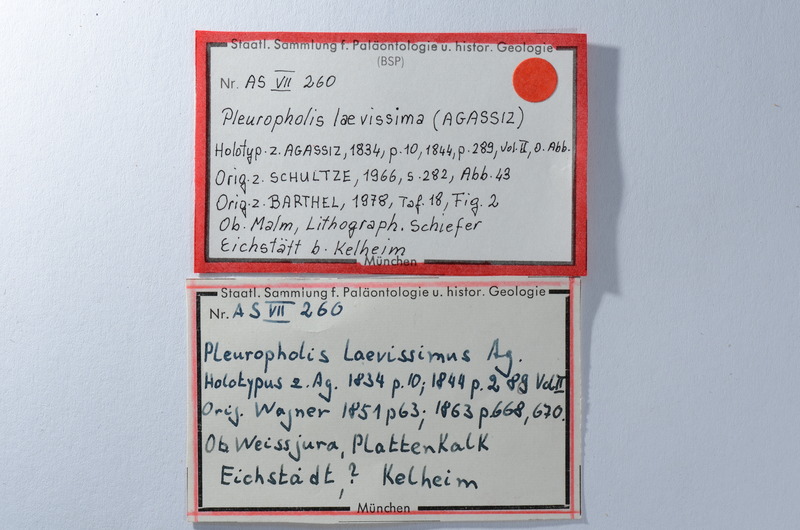 Staatl. Sammlung f. Paläontologie u. histor. Geologie
(BSP)
Nr. AS VII 260
Pleuropholis laevissima (AGASSIZ)
Holotyp. z. AGASSIZ, 1834, p. 10, 1844, p. 289, Vol. II, o. Abb.
Orig. z. SCHULTZE, 1966, S. 282, Abb. 43
Orig. z. BARTHEL, 1978, Taf. 18, Fig. 2
Ob. Malm, Lithograph. Schiefer
Eichstätt b. Kelheim
München
Staatl. Sammlung f. Paläontologie u. histor. Geologie
Nr. AS VII 260
Pleuropholis laevissimus Ag.
Holotypus z. Ag. 1834 p. 10; 1844 p. 289 Vol II
Orig. Wagner 1851 p 63; 1863 p. 668, 670.
Ob Weissjura, Plattenkalk
Eichstädt, ? Kelheim
München